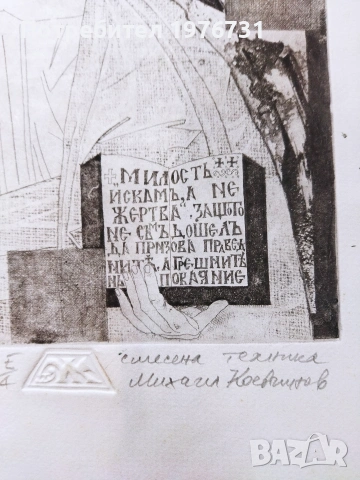 отребител 1976731
"МИЛОСТЬ
ИСКАМЪ, А НЕ
ЖЕРТВА". ЗАЩОТО
НЕ СЪМЪ ДОШЕЛЪ
ДА ПРИЗОВА ПРАВЕД
НИТѢ, А ГРЕШНИТѢ
НА ПОКАЯНИЕ
Е/А
смесена техника
Михаил
BAZAR